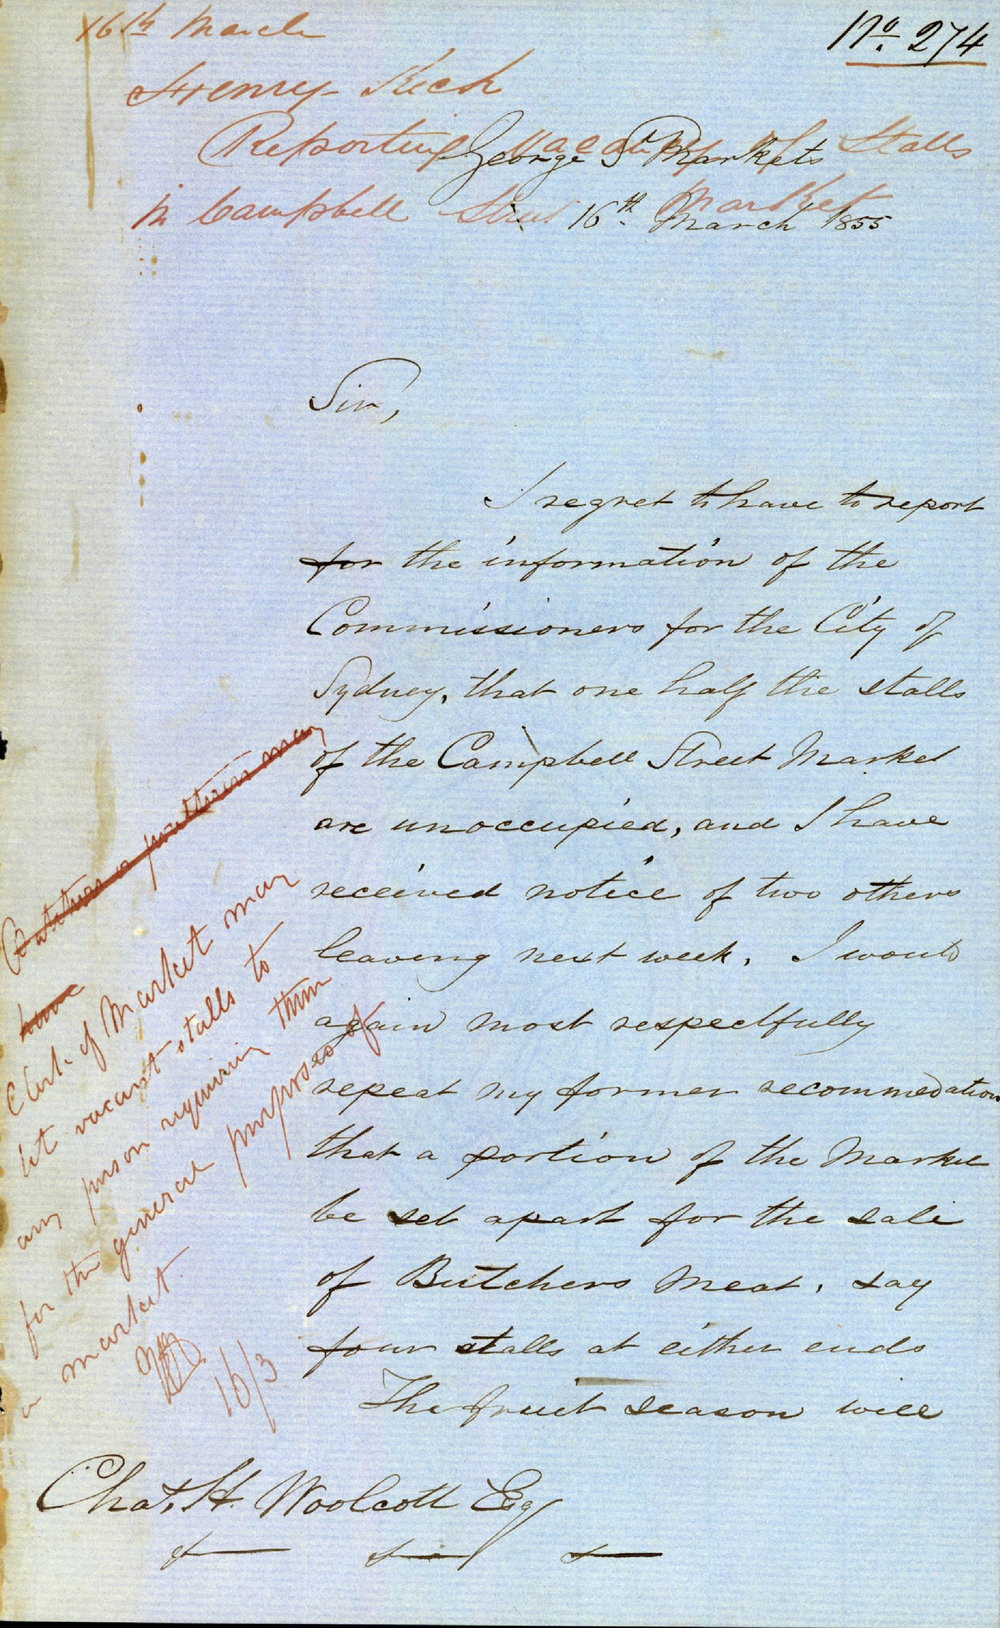 16th March
No. 274
Henry Keck
Reporting Vacancy of Stalls
in Campbell Street Market
George St Markets
16th March 1855
Sir,
I regret to have to report
for the information of the
Commissioners for the City of
Sydney, that one half the stalls
of the Campbell Street Market
are unoccupied, and I have
received notice of two others
leaving next week. I would
again most respectfully
repeat my former recommedation
that a portion of the Market
be set apart for the sale
of Butchers Meat, say
four stalls at either ends
The fruit season will
Chas. H. Woolcott Esq
Butchers or poulterers may
have
Clerk of Market may
let vacant stalls to
any person requiring them
for the general purposes of
a market
16/3